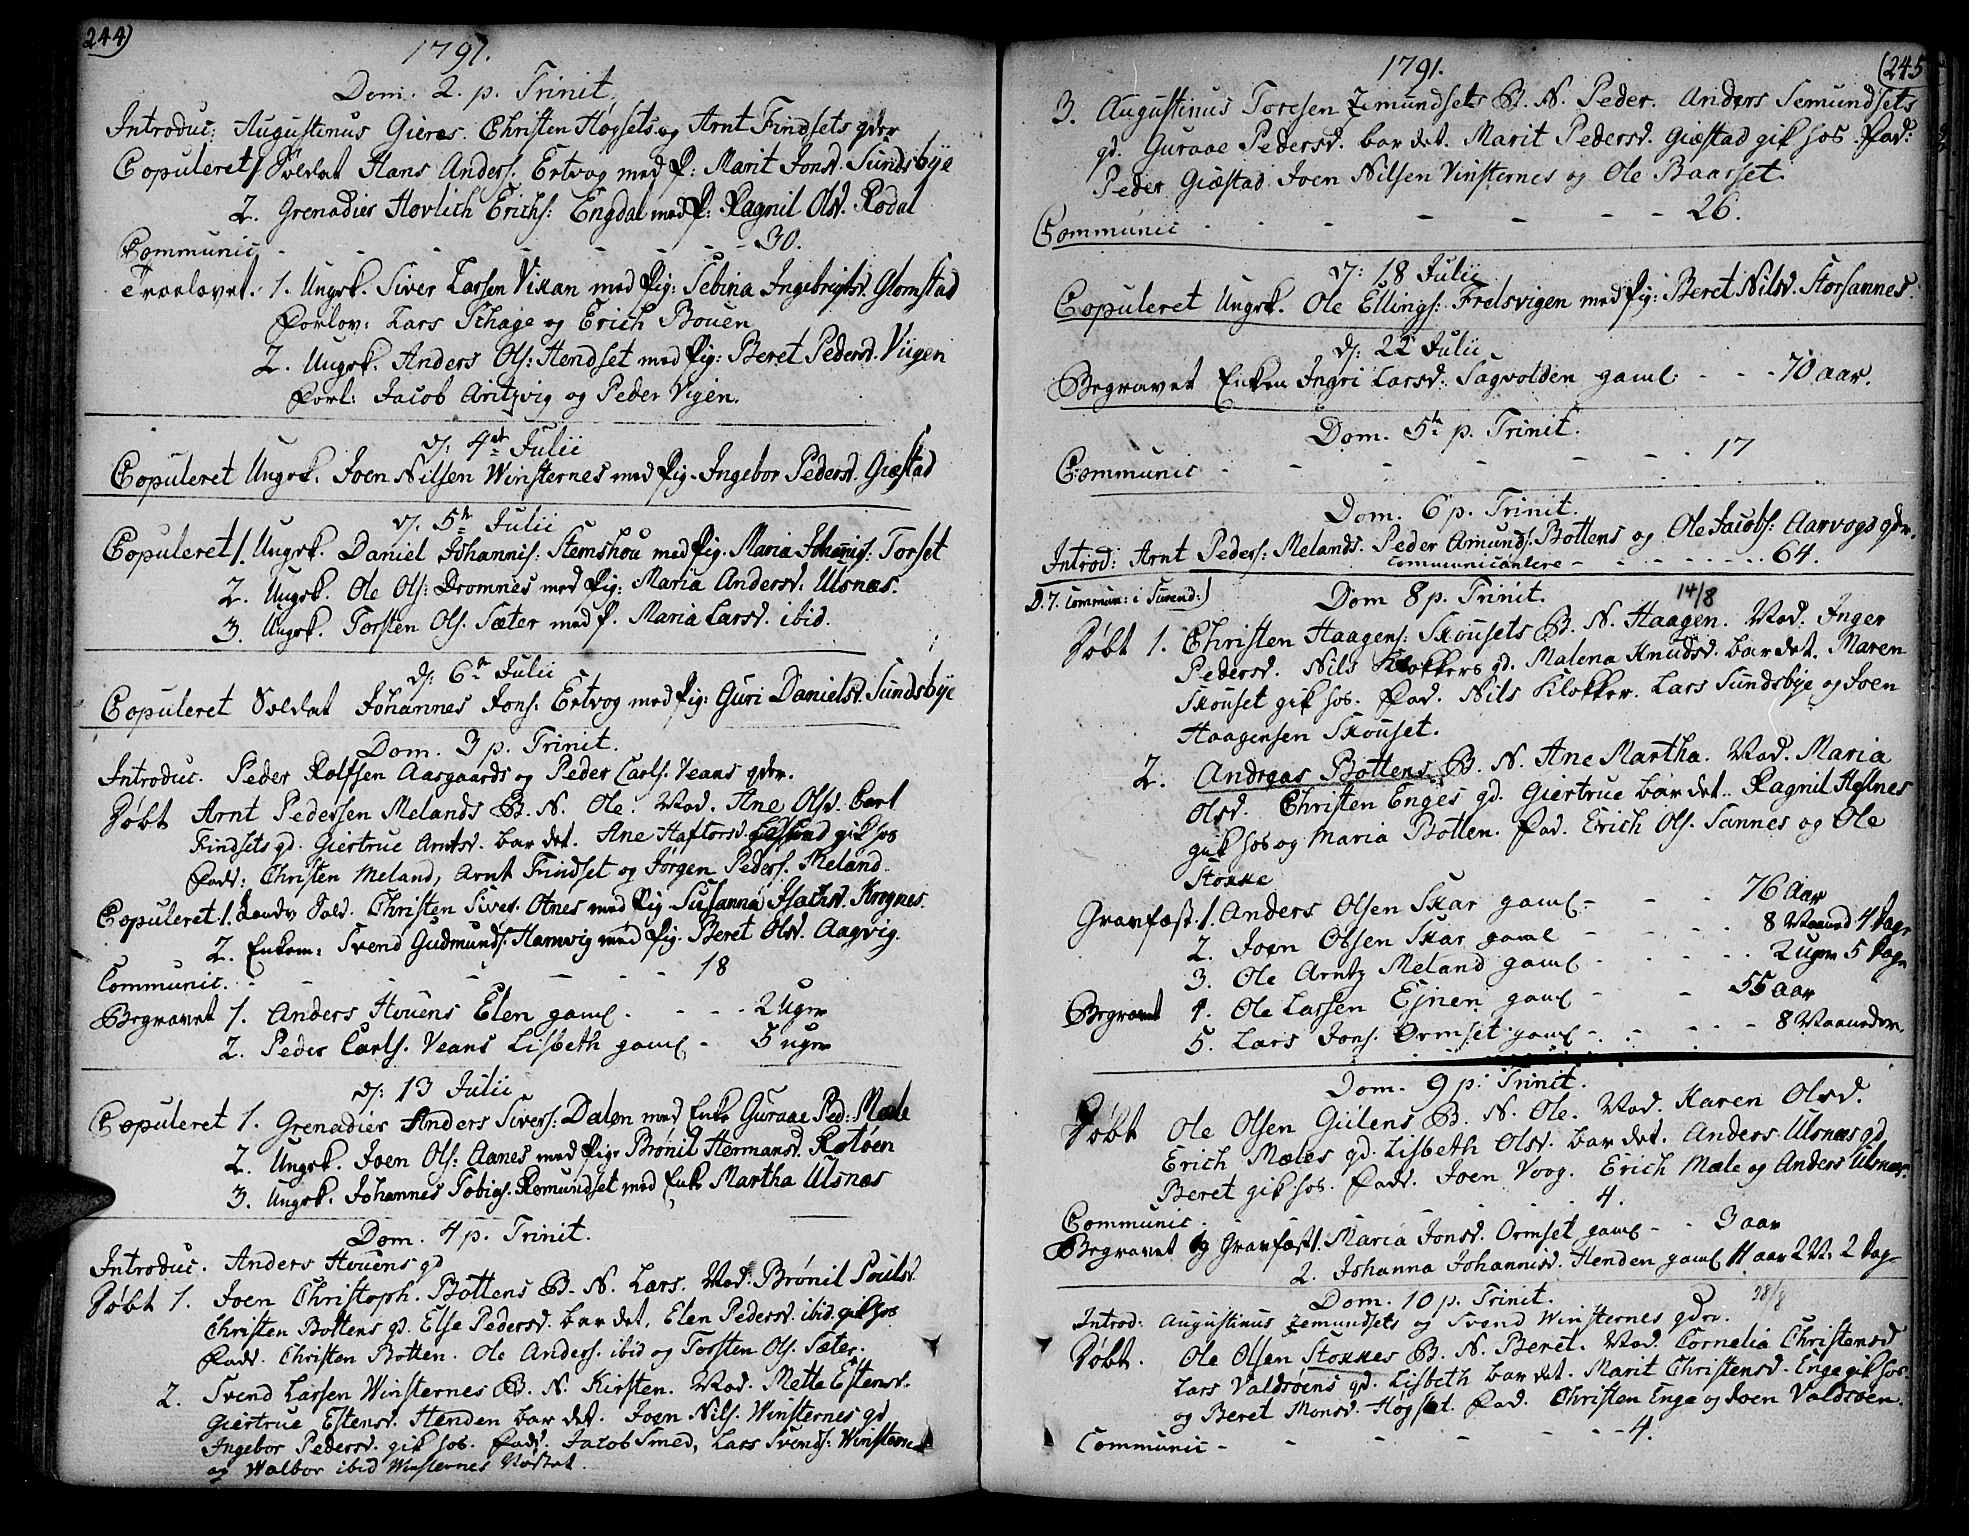 244)
1791.
Dom. 2. p. Trinit.
Introduc: Augustinus Gieras. Christen Høgsets og Arnt Findsets qdr
Copuleret 1 Soldat Hans Anders. Ertvog med P: Marit Jonsd. Sundsbye
2. Grenadier Hovlich Erichs: Engdal med P: Ragnil Olsd. Rodal
Communic - - - - - - 30.
Troelovet. 1. Ungk. Siver Larsen Vikan med Pig: Sebina Ingebrigtsd. Glomstad
Forlov: Lars Schage og Erich Bouen
2. Ungk. Anders Ols: Hendset med Pig: Beret Pedersd. Viigen
Forl: Jacob Aritzvig og Peder Vigen.
d: 4de Julii
Copuleret Ungk. Joen Nilsen Winsternes med Pig. Ingebor Pedersd. Giæstad
d. 5te Julii
Copuleret 1. Ungk. Daniel Johannis: Stemshou med Pig. Maria Johannis: Torset
2. Ungk. Ole Ols: Dromnes med Pig: Maria Andersd. Ulsnæs.
3. Ungk. Torsten Ols. Sæter med P. Maria Larsd. ibid.
d: 6te Julii
Copuleret Soldat Johannes Jons: Ertvog med Pig: Guri Danielsd. Sundsbye
Dom. 3 p. Trinit.
Introduc. Peder Rolfsen Aasgaards og Peder Carls. Veans qdr.
Døbt Arnt Pedersen Melands B. N. Ole. Mod. Ane Olsd. Carl
Findsets qd. Giertrue Arntsd. bar det. Ane Haftorsd. gik hos
Fadd: Christen Meland, Arnt Findset og Jørgen Peders. Meland
Copuleret. 1. Landv Sold. Christen Sivers. Otnes med Pig Susanna Isachsd. Kongnes.
2. Enkem: Svend Gudmunds. Hamvig med Pig. Beret Olsd. Aagvig.
Communic. - - - - - - 18
Begravet 1. Anders Houens Elen gaml. - - - 2 Uger
2. Peder Carls. Veans Lisbeth gaml - 5 uger
d: 13 Julii
Copuleret 1. Grenadier Anders Sivers: Daløn med Enke Guraae Ped: Mæle
2. Ungk. Joen Ols: Aanes med Pig: Brønil Hermansd. Rotøen
3. Ungk. Johannes Tobias. Romundset med Enke Martha Ulsnæs
Dom. 4 p. Trinit.
Introduc. Anders Houens qd
Døbt 1. Joen Christoph. Bottens B. N. Lars. Mod. Brønil Poulsd.
Christen Bottens qd. Else Pedersd. bar det. Elen Pedersd. ibid. gik hos
Fadd. Christen Botten. Ole Anders. ibid og Torsten Ols. Sæter.
2. Svend Larsen Winsternes B. N. Kirsten. Mod. Mette Estensd.
Giertrue Estensd. Henden bar det. Joen Nils. Winsternes qd
Ingebor Pedersd. gik hos. Fadd. Jacob Smed, Lars Svends: Winsternes
og Walbor ibid Winsternes
(245
1791.
3. Augustinus Toresen Zemundsets B. N. Peder. Anders Semundsets
qd. Guraae Pedersd. bar det. Marit Pedersd. Giæstad gik hos. Fad:
Peder Giæstad Joen Nilsen Vinsternes og Ole Baarset.
Communic - - - - - - 26.
d: 18 Julii
Copuleret Ungk. Ole Ellings: Fredsvigen med Pig: Beret Nilsd. Storsannes.
d: 22 Julii
Begravet Enken Ingri Larsd: Sagvolden gaml: - - - 70 aar.
Dom. 5te p. Trinit.
Communic - - - - - - 17
Dom. 6 p. Trinit.
Introd: Arnt Peders: Melands. Peder Amunds. Bottens og Ole Jacobs: Aarvogs qdr.
Communicantere - - - - - - 64.
D. 7. Commun: i Surend:)
Dom 8 p. Trinit. 14/8
Døbt 1. Christen Haagens: Skousets B. N. Haagen. Mod. Inger
Pedersd. Nils Klokkers qd. Malena Knudsd. bar det. Maren
Skouset gik hos. Fad. Nils Klokker. Lars Sundsbye og Joen
Haagensen Skouset.
2. Andreas Bottens B. N. Ane Martha. Mod. Maria
Olsd. Christen Enges qd. Giertrue bar det. Ragnil Helnes
gik hos og Maria Botten. Fad. Erich Ols. Sannes og Ole
Stokke
Gravfæst. 1. Anders Olsen Skar gaml - - - 76 Aar
2. Joen Olsen Skar gaml - - - 8 Maaned 4 Dage
3. Ole Arntz Meland gaml - - - 2 uger 5 Dage
Begravet 4. Ole Larsen Ejnen gaml - - 55 aar
5. Lars Jons. Ormset gaml - - - 8 Maaneder.
Dom. 9 p: Trinit.
Døbt Ole Olsen Gulens B. N. Ole. Mod. Karen Olsd.
Erich Mæles qd. Lisbeth Olsd. bar det. Anders Ulsnæs qd
Beret gik hos. Fadd. Joen Voog. Erich Mæle og Anders Ulsnæs.
Communic. - - - - - 4.
Begravet og Gravfæst 1. Maria Jonsd. Ormset gaml - - 3 aar
2. Johanna Johannisd. Henden gaml 11 aar 2 M. 2 Dag
Dom. 10 p. Trinit. 28/8
Introd: Augustinus Zemundsets og Svend Winsternes qdr.
Døbt. Ole Olsen Stokkes B. N. Beret. Mod. Cornelia Christensd
Lars Valdsøens qd. Lisbeth bar det. Marit Christensd. Enge gik hos.
og Beret Monsd. Høgset. Fad. Christen Enge og Joen Valdsøen.
Communic - - - - - - 4.